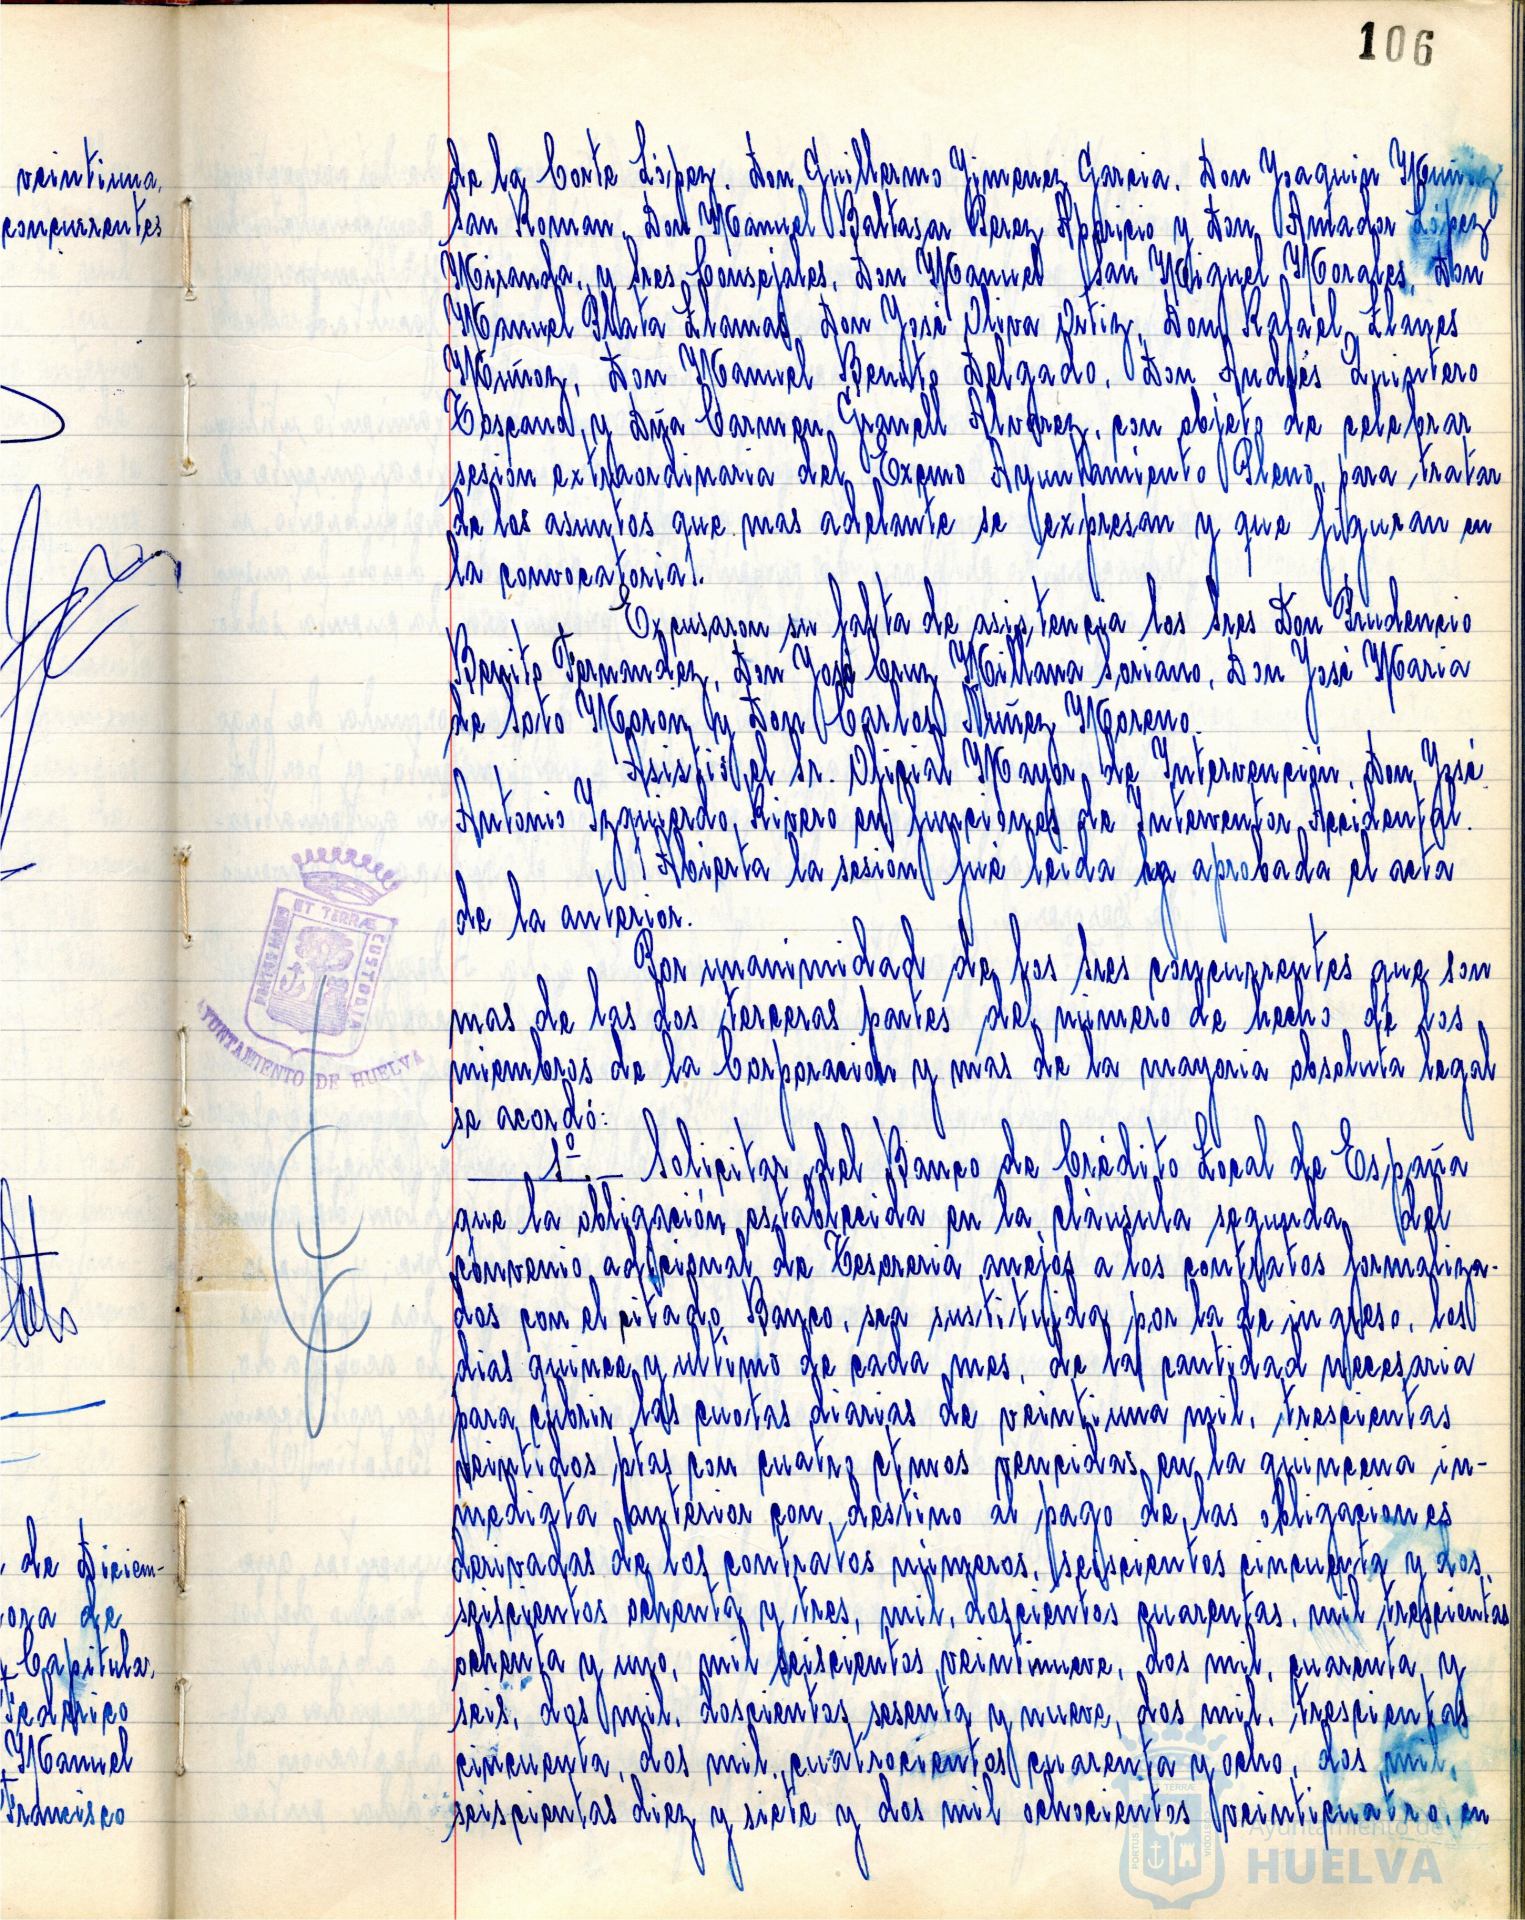 106
veintiuna,
concurrentes
de la Corte López. Don Guillermo Jimenez Garcia. Don Joaquin Muñiz
San Roman, Don Manuel Baltasar Perez Aparicio y Don Amador López
Miranda, y Sres Consejales, Don Manuel San Miguel Morales, Don
Manuel Mata Llamas Don José Oliva Ortiz, Don Rafael Llanes
Muñoz, Don Manuel Benito Delgado, Don Andrés Quintero
Toscano, y Dña Carmen Granell Alvarez, con objeto de celebrar
sesión extraordinaria del Excmo Ayuntamiento Pleno, para tratar
de los asuntos que mas adelante se expresan y que figuran en
la convocatoria.
Excusaron su falta de asistencia los Sres Don Prudencio
Benito Fernandez, Don José Cruz Millana Soriano, Don José Maria
de Soto Moron y Don Carlos Núñez Moreno.
Asistió el Sr. Oficial Mayor, de Intervención, Don José
Antonio Izquierdo, Rivero en funciones de Interventor Accidental.
Abierta la sesión fué leida y aprobada el acta
de la anterior.
Por unanimidad de los Sres concurrentes que son
mas de las dos terceras partes del número de hecho de los
miembros de la Corporación y mas de la mayoria absoluta legal
se acordó:
1º.— Solicitar del Banco de Crédito Local de España
que la obligación establecida en la cláusula segunda del
convenio adicional de Tesoreria anejos a los contratos formaliza-
dos con el citado Banco, sea sustituida por la de ingreso, los
dias quince y ultimo de cada mes, de la cantidad necesaria
para cubrir las cuotas diarias de veintiuna mil, trescientas
veintidos ptas con cuatro ctmos vencidas en la quincena in-
mediata anterior con destino al pago de las obligaciones
derivadas de los contratos números, seiscientos cincuenta y dos,
seiscientos ochenta y tres, mil, doscientos cuarentas, mil trescientas
ochenta y uno, mil seiscientos veintinueve, dos mil, cuarenta, y
seis, dos mil, doscientos sesenta y nueve, dos mil, trescientas
cincuenta, dos mil, cuatrocientos cuarenta y ocho, dos mil,
seiscientas diez y siete y dos mil ochocientos veinticuatro, en
PORTUS MARIS ET TERRÆ CUSTODIA
AYUNTAMIENTO DE HUELVA
de Diciem-
ora de
Capitular,
Federico
Manuel
Francisco
Ayuntamiento de
HUELVA